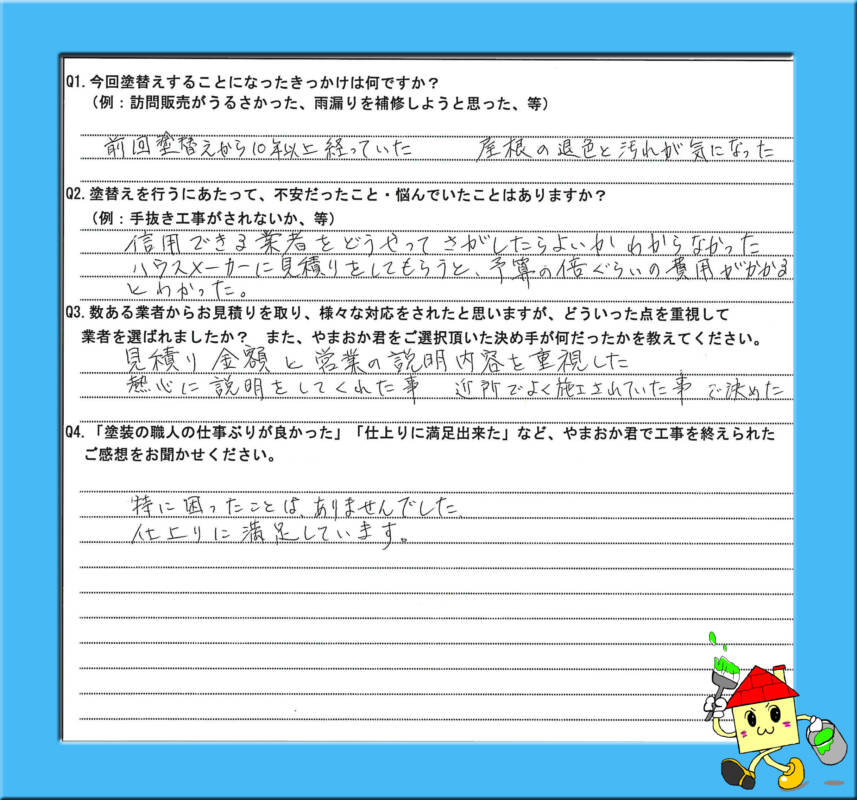 Q1. 今回塗替えすることになったきっかけは何ですか？
（例：訪問販売がうるさかった、雨漏りを補修しようと思った、等）
前回塗替えから10年以上経っていた　屋根の退色と汚れが気になった
Q2. 塗替えを行うにあたって、不安だったこと・悩んでいたことはありますか？
（例：手抜き工事がされないか、等）
信用できる業者をどうやってさがしたらよいかわからなかった
ハウスメーカーに見積りをしてもらうと、予算の倍ぐらいの費用がかかる
とわかった。
Q3. 数ある業者からお見積りを取り、様々な対応をされたと思いますが、どういった点を重視して
業者を選ばれましたか？　また、やまおか君をご選択頂いた決め手が何だったかを教えてください。
見積り金額と営業の説明内容を重視した
熱心に説明をしてくれた事　近所でよく施工されていた事で決めた
Q4. 「塗装の職人の仕事ぶりが良かった」「仕上りに満足出来た」など、やまおか君で工事を終えられた
ご感想をお聞かせください。
特に困ったことは、ありませんでした
仕上りに満足しています。